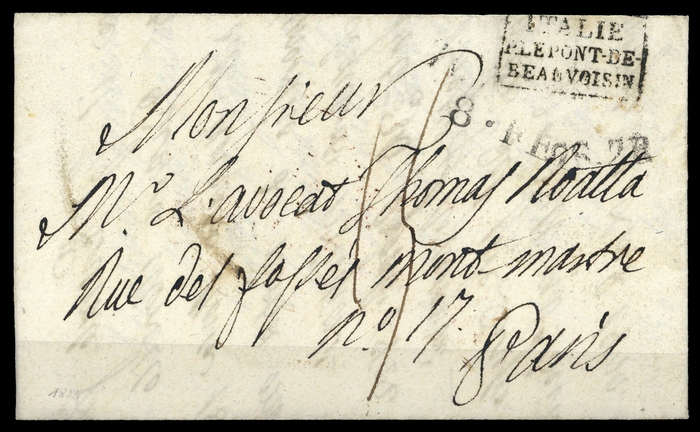 ITALIE
P.LEPONT-DE-
BEAUVOISIN
Monsieur
8.
Mr. L'avocat Thomas
Rue des fossés mont-martre
no. 17.
Paris